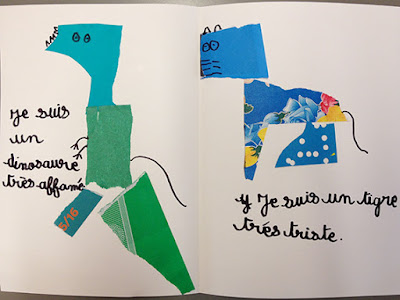 Je suis
un
dinosaure
très affamé
5/16
y Je suis un tigre
très triste.